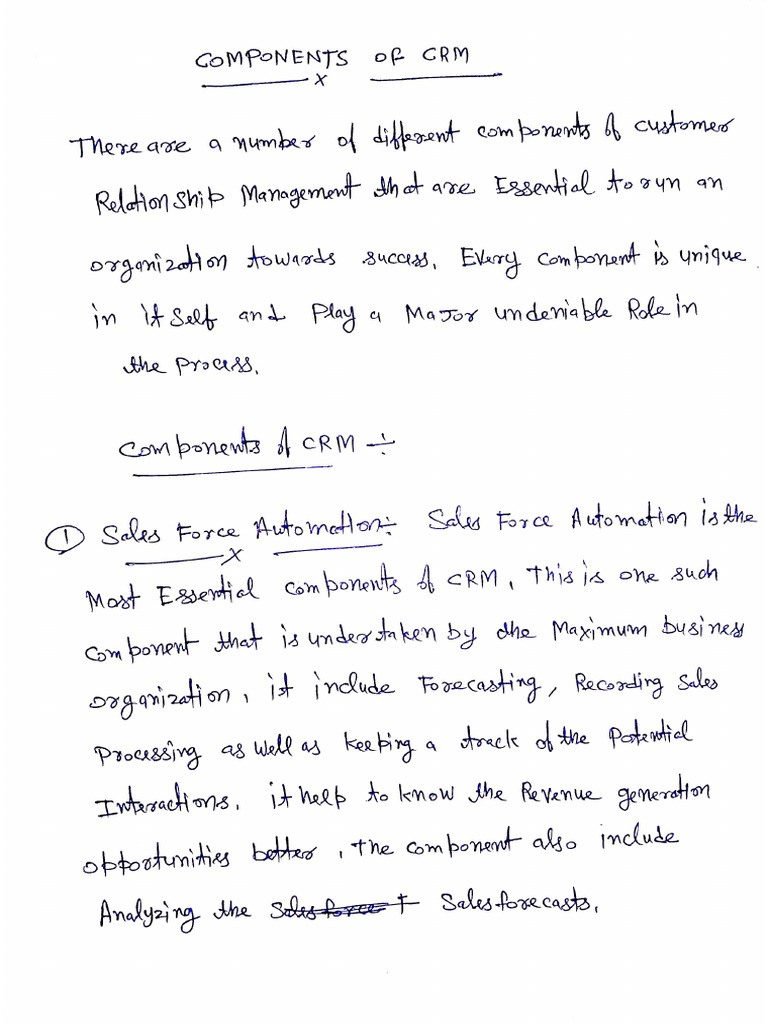 COMPONENTS OF CRM
There are a number of different components of customer
Relationship Management that are Essential to run an
organization towards success. Every component is unique
in it self and Play a Major undeniable Role in
the process.
Components of CRM ÷
① Sales Force Automation ÷ Sales Force Automation is the
Most Essential components of CRM, This is one such
component that is undertaken by the Maximum business
organization, it include Forecasting, Recording Sales
Processing as well as keeping a track of the Potential
Interactions. it help to know the Revenue generation
opportunities better, The component also include
Analyzing the Sales force + Sales forecasts.